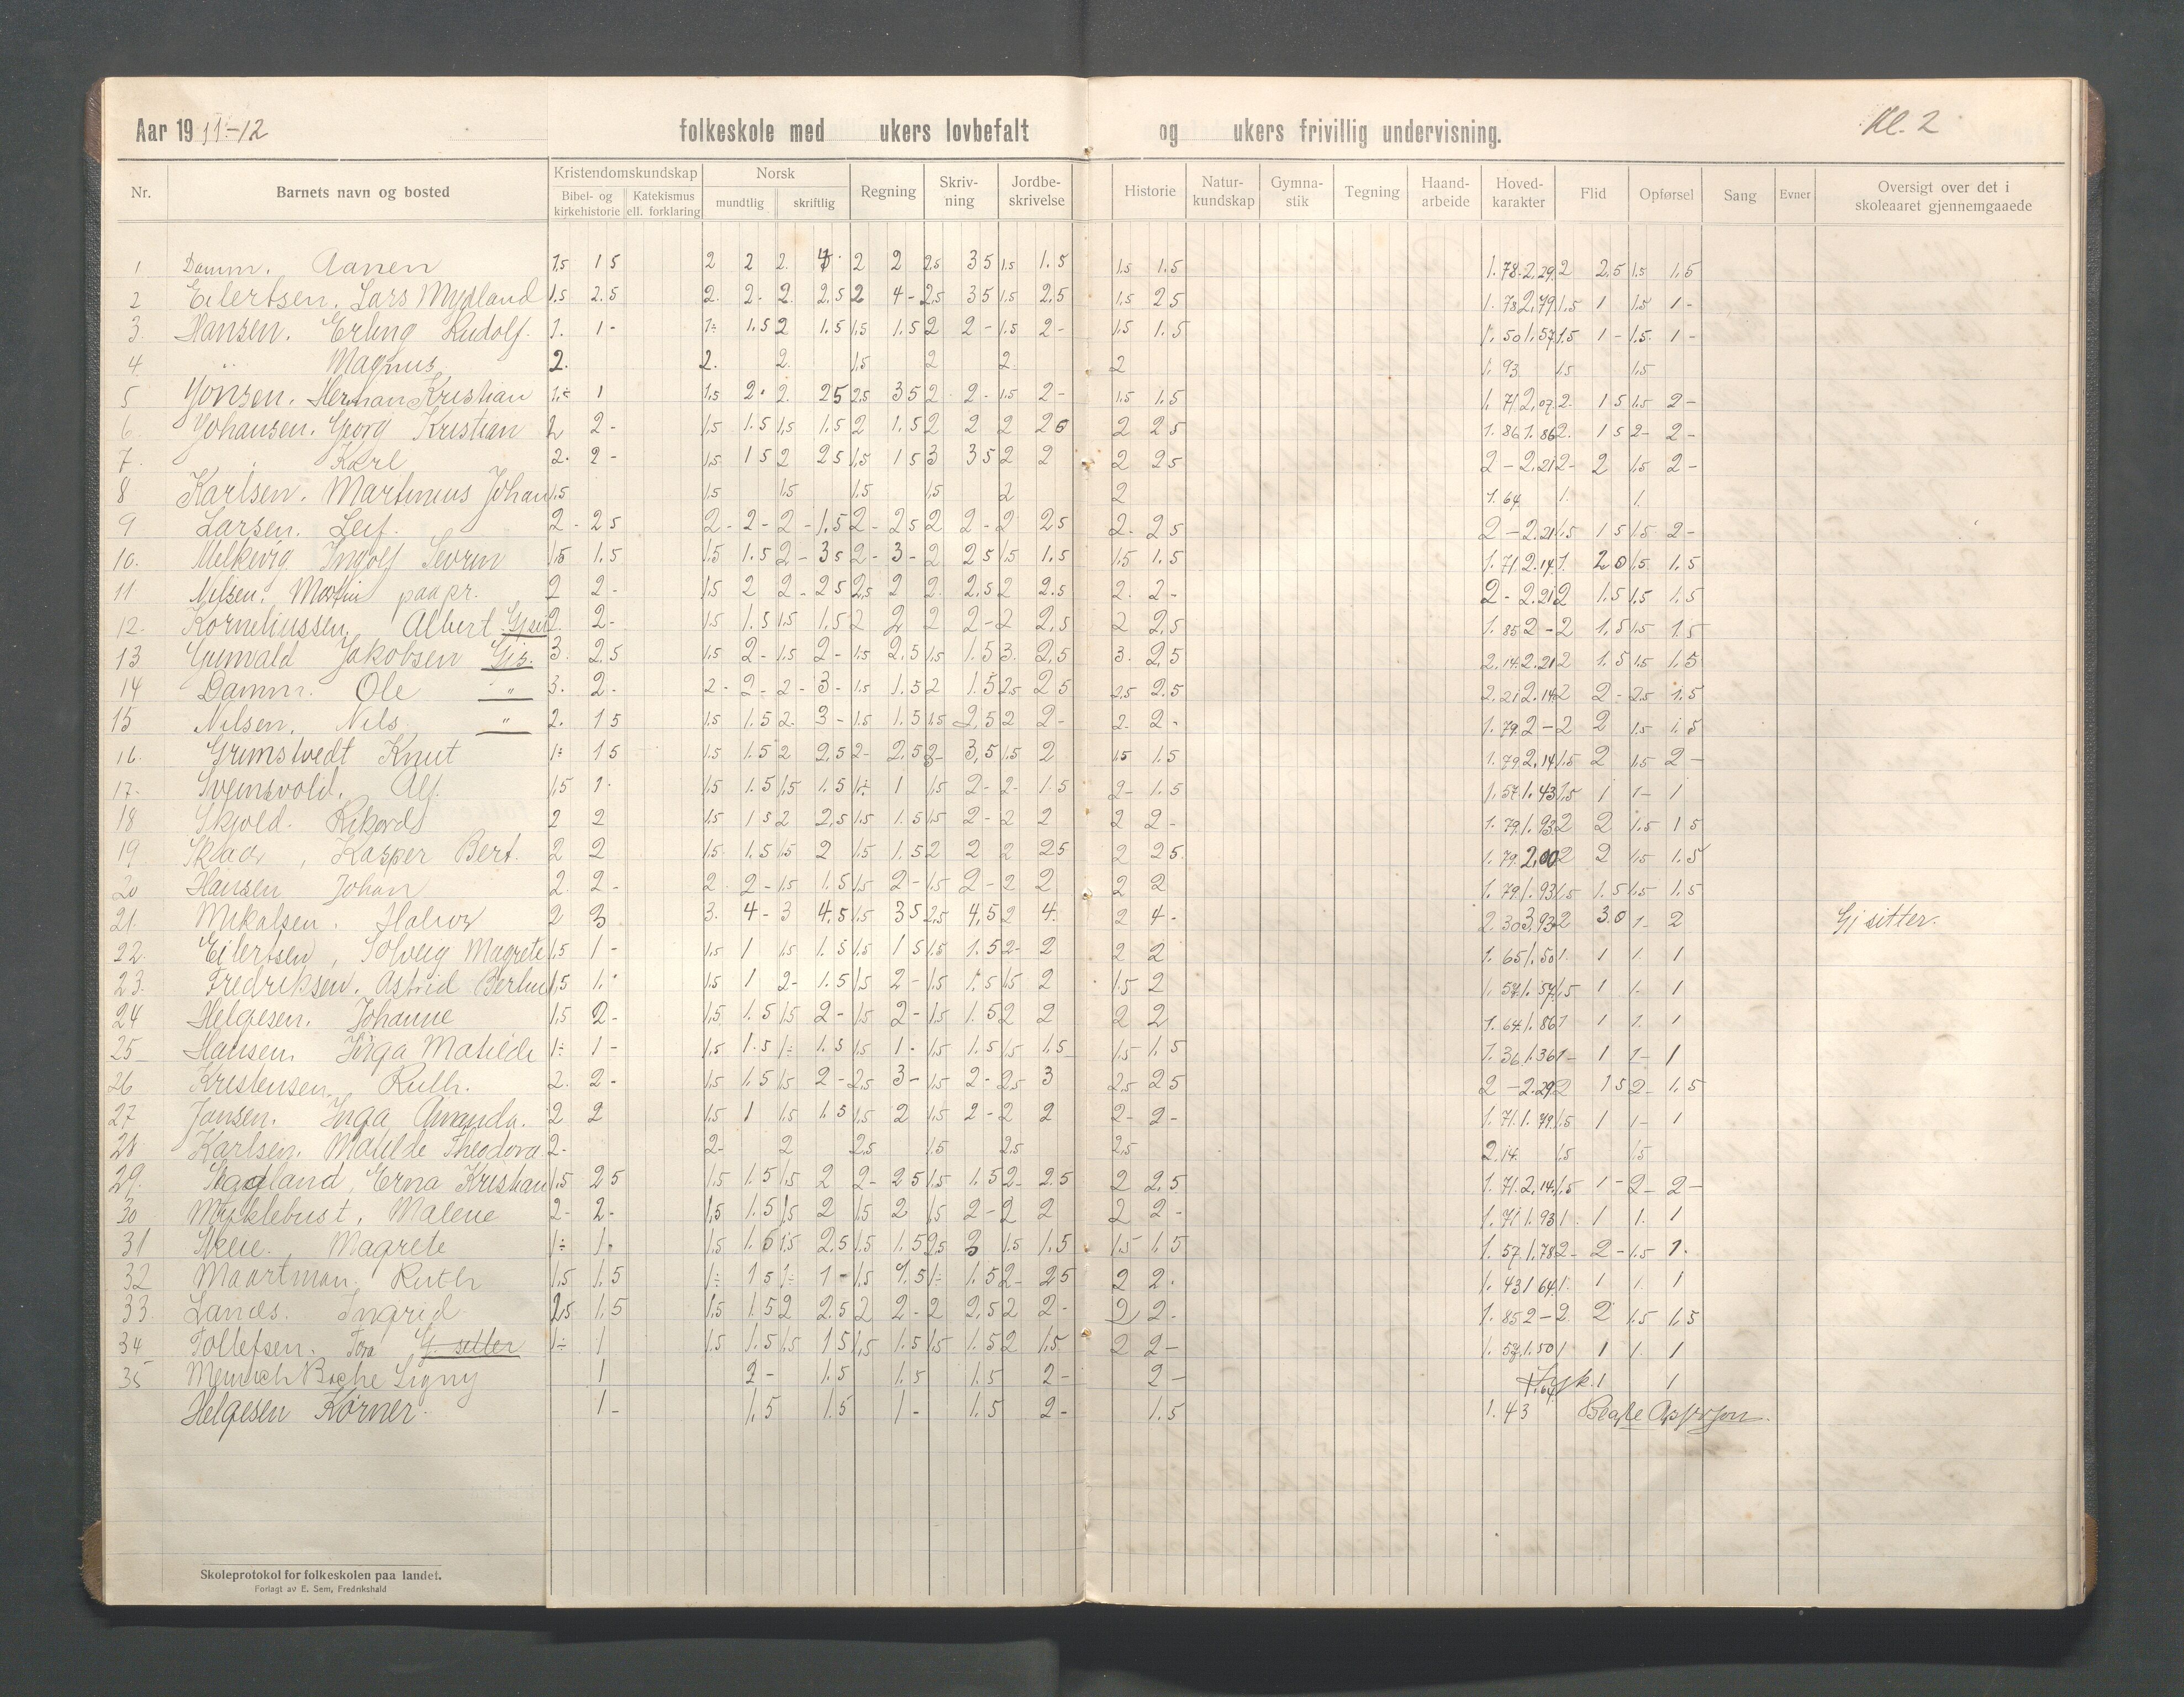 Aar 1911-12 folkeskole med ukers lovbefalt og ukers frivillig undervisning. Kl. 2
Nr. Barnets navn og bosted Kristendomskundskap Norsk Regning Skriv-ning Jordbe-skrivelse Historie Natur-kundskap Gymna-stik Tegning Haand-arbeide Hoved-karakter Flid Opførsel Sang Evner Oversigt over det i skoleaaret gjennemgaaede
Bibel- og kirkehistorie Katekismus ell. forklaring mundtlig skriftlig
1 Damm. Aanen 1.5 1 5 2 2 2. 2 2 2.5 3 5 1.5 1.5 1.5 1.5 1.78 2.29 2 2.5 1.5 1.5
2 Eilertsen. Lars Mydland 1.5 2.5 2. 2- 2. 2.5 2 4- 2.5 3 5 1.5 2.5 1.5 2 5 1.78 2.79 1.5 1 1.5 1-
3. Hansen. Erling Rudolf. 1. 1- 1÷ 1.5 2 1.5 1.5 1.5 2 2- 1.5 2- 1.5 1.5 1.50 1.57 1.5 1- 1.5. 1-
4. " Magnus 2. 2. 2. 1.5 2 2. 2 1.93 1.5 1.5
5 Jonsen. Herman Kristian 1÷ 1 1.5 2. 2. 2 5 2.5 3 5 2 2- 1.5 2- 1.5 1.5 1.71 2.07 2. 1 5 1.5 2-
6. Johansen. Georg Kristian 2 2- 1.5 1.5 1.5 1.5 2 1.5 2 2 2 2 2 5 1.86 1.86 2. 1 5 2- 2-
7. " Karl 2. 2- 1.5 1 5 2 2 5 1.5 1 5 3 3 5 2 2 2 2 5 2- 2.21 2- 2 1.5 2-
8 Karlsen. Martinius Johan 1.5 1.5 1.5 1.5 1.5 2 2 1.64 1. 1.
9 Larsen. Leif. 2- 2 5 2- 2- 2- 1.5 2- 2 5 2 2- 2 2 5 2. 2 5 2- 2.21 1.5 1 5 1.5 2-
10. Melkevig Ingolf Sevrin 1.5 1.5 1.5 1.5 2- 3 5 2- 3- 2 2 5 1.5 1.5 1.5 1.5 1.71 2.14 1. 2.0 1.5 1.5
11 Nilsen. Martin paa pr. 2 2- 1.5 2 2- 2 5 2.5 2 2. 2.5 2 2.5 2. 2- 2- 2.21 2 1.5 1.5 1.5
12. Korneliussen Albert 2. 2- 1.5 1.5 1.5 1.5 2 2 2 2- 2 2.5 2 2.5 1.85 2- 2 1.5 1.5 1.5
13 Grunvald Jakobsen Gjs. 3. 2.5 1.5 2- 1.5 2- 1.5 2.5 1.5 1.5 3. 2.5 3. 2.5 2.14 2.21 2 1.5 1.5 1.5
14 Damm. Ole " 3. 2- 2- 2- 2- 3- 1.5 1.5 2 1.5 2.5 2 5 2.5 2.5 2.21 2.14 2 2- 2.5 1.5
15 Nilsen. Nils. " 2. 1 5 1.5 1.5 2. 3- 1.5 1.5 1.5 2.5 2 2- 2- 2- 1.79 2- 2 2 1.5 1.5
16. Grimstvedt Knut 1÷ 1 5 1.5 1.5 2 2.5 2- 2.5 2- 3.5 1.5 2 1.5 1.5 1.79 2.14 1.5 2 1.5 2-
17. Svensvold. Alf. 1.5 1. 1.5 1.5 1.5 1.5 1÷ 1 1.5 2- 2- 1.5 2- 1.5 1.57 1.43 1.5 1 1- 1
18 Skjold. Rikard 2 2 1.5 1 5 2 2.5 1.5 1.5 1.5 2- 2 2 2 2- 1.79 1.93 2 2 1.5 1 5
19 Skaar, Kasper Bert. 2 2 1.5 1.5 1.5 2 1.5 1.5 2 2 2 2 5 2 2 5 1.79 2.00 2 2 1.5 1.5
20 Hansen Johan 2. 2- 2. 2- 1.5 1.5 1.5 2- 1.5 2- 2 2 2 2 1.79 1.93 1.5 1.5 1.5 1.5
21. Mikalsen. Halvor 2 3 3. 4- 3 4.5 1.5 3 5 2.5 4.5 2 4. 2 4- 2.30 3.93 2 3.0 1- 2 Gj sitter.
22. Eilertsen, Solveig Magrete 1.5 1- 1.5 1 1.5 1.5 1.5 1 5 1.5 1.5 2- 2 2 2 1.65 1.50 1. 1 1. 1
23. Fredriksen. Astrid 1.5 1. 1.5 1 2- 1.5 1.5 2- 1.5 1.5 1.5 2 1.5 2 1.57 1.57 1.5 1 1- 1
24 Helgesen. Johanne 1.5 2- 1.5 1.5 1.5 2- 1.5 2- 1.5 1.5 2 2 2 2 1.64 1.86 1 1 1. 1
25- Hansen. Inga Matilde 1÷ 1- 1.5 1.5 1÷ 1.5 1.5 1- 1.5 1.5 1.5 1.5 1.5 1.5 1.36 1.36 1- 1 1- 1
26 Kristensen. Ruth. 2. 2- 1.5 1.5 1.5 2- 2.5 3- 1.5 2- 2.5 3 2.5 2 5 2- 2.29 2 1 5 2- 1.5
27 Jansen. Inga Amanda. 2 2 1.5 1 1.5 1.5 1.5 2 1.5 2- 2 2 2- 2- 1.71 1.79 1.5 1 1- 1
28 Karlsen. Matilde Theodora 2- 2- 2 2.5 1.5 2.5 2.5 2.14. 1.5 1.5
29. Erna Kristian 1.5 2 5 1.5 1.5 1.5 2 2- 2 5 1.5 1.5 2- 2.5 2 2.5 1.71 2.14 1.5 1- 2- 2-
30 Myklebust, Malene 2- 2- 1.5 1.5 1.5 2 1.5 2 1.5 2- 2 2 2 2- 1.71 1.93 1. 1 1. 1
31 Skeie., Magrete 1÷ 1. 1.5 1.5 1.5 2.5 1.5 1.5 2.5 3 1.5 1.5 1.5 1.5 1.57 1.78 2- 2- 1.5 1.
32 Maartman. Ruth 1.5 1.5 1÷ 1 5 1÷ 1- 1.5 1.5 1÷ 1.5 2- 2 5 2 2. 1.43 1 64 1. 1 1. 1
33. Landes. Ingrid 2.5 1.5 1.5 1.5 2 2.5 2 2- 2 2.5 2 2- 2 2- 1.85 2- 2. 2 1.5 1.5
34 Tollefsen. Tora Gj. sitter 1÷ 1 1.5 1.5 1.5 1 5 1.5 1.5 1.5 1.5 2 1.5 2 2- 1.57 1.50 1 1 1. 1
35 Meinich Bache Signy 1 2- 1.5 1.5 1.5 2- 2- 1.64 1 1
Helgesen Kørner. 1- 1.5 1.5 1- 1.5 2- 1.5 1.43
Skoleprotokol for folkeskolen paa landet.
Forlagt av E. Sem, Fredrikshald